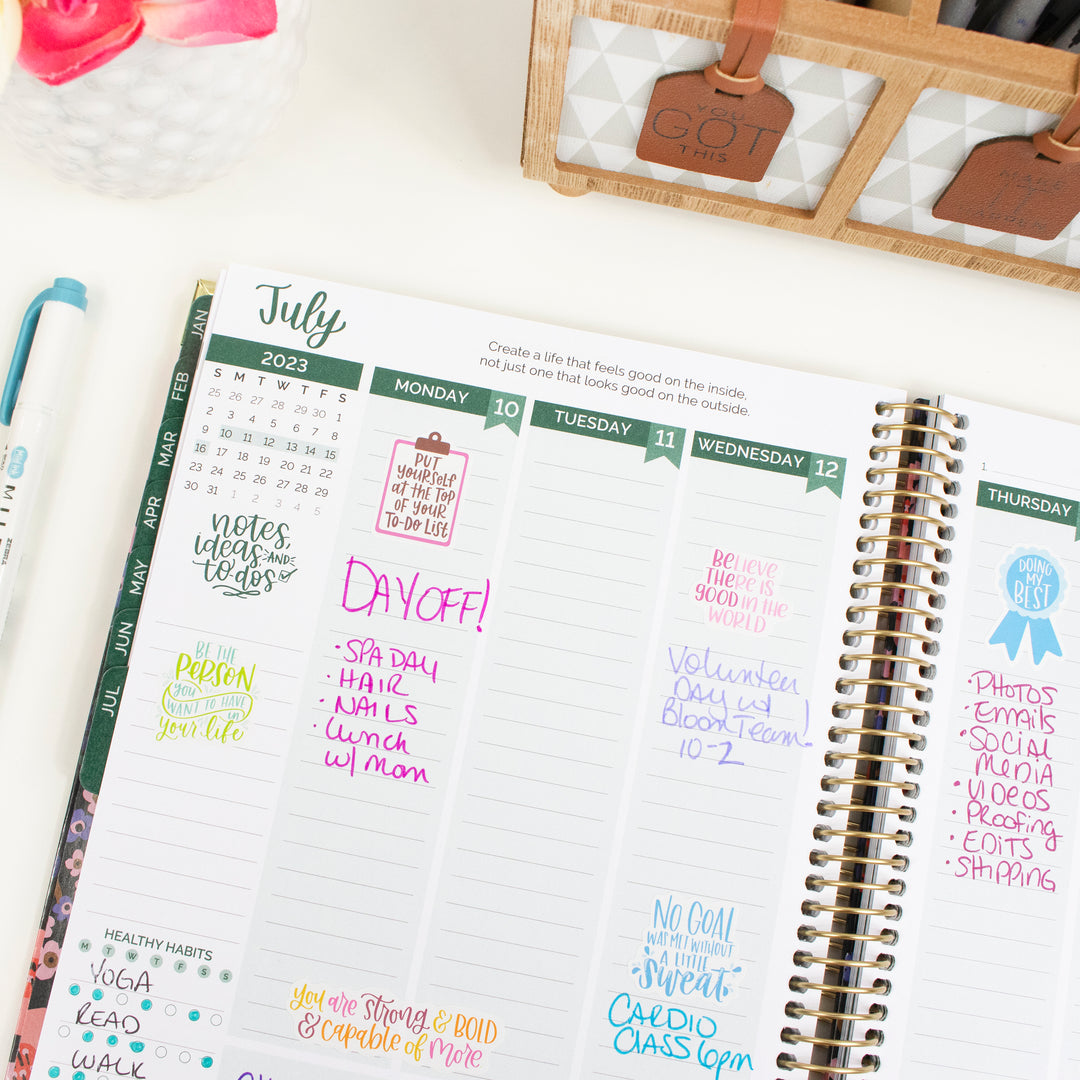 YOU
GOT
THIS
MAKE
IT
JAN
FEB
MAR
APR
MAY
JUN
JUL
ZEBRA
July
Create a life that feels good on the inside,
not just one that looks good on the outside.
2023
S M T W T F S
25 26 27 28 29 30 1
2 3 4 5 6 7 8
9 10 11 12 13 14 15
16 17 18 19 20 21 22
23 24 25 26 27 28 29
30 31 1 2 3 4 5
notes,
ideas, AND
to-dos
BE THE
PERSON
YOU
WANT TO HAVE
in
your life
HEALTHY HABITS
M T W T F S S
YOGA
READ
WALK
MONDAY 10
PUT
YOURSELF
at the TOP
OF YOUR
TO-DO LIST
DAY OFF!
• SPA DAY
• HAIR
• NAILS
• Lunch
w/ mom
you are STRONG & BOLD
& capable of more
TUESDAY 11
WEDNESDAY 12
BELIEVE
THERE IS
GOOD IN THE
WORLD
Volunteer
DAY w/
Bloom Team!
10-2
NO GOAL
WAS MET WITHOUT
A LITTLE
sweat
CARDIO
CLASS 6pm
1
THURSDAY
DOING
MY
BEST
• PHOTOS
• Emails
• SOCIAL
MEDIA
• VIDEOS
• Proofing
• EDITS
• SHIPPING